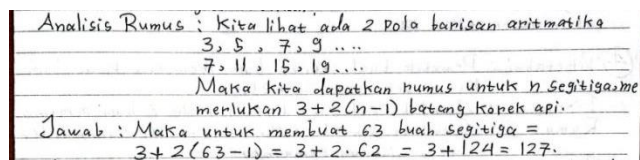 Analisis Rumus : Kita lihat ada 2 pola barisan aritmatika
3, 5, 7, 9 ....
7, 11, 15, 19....
Maka kita dapatkan rumus untuk n segitiga, me
merlukan 3+2(n-1) batang korek api.
Jawab : Maka untuk membuat 63 buah segitiga =
3+2(63-1) = 3+2.62 = 3+124 = 127.